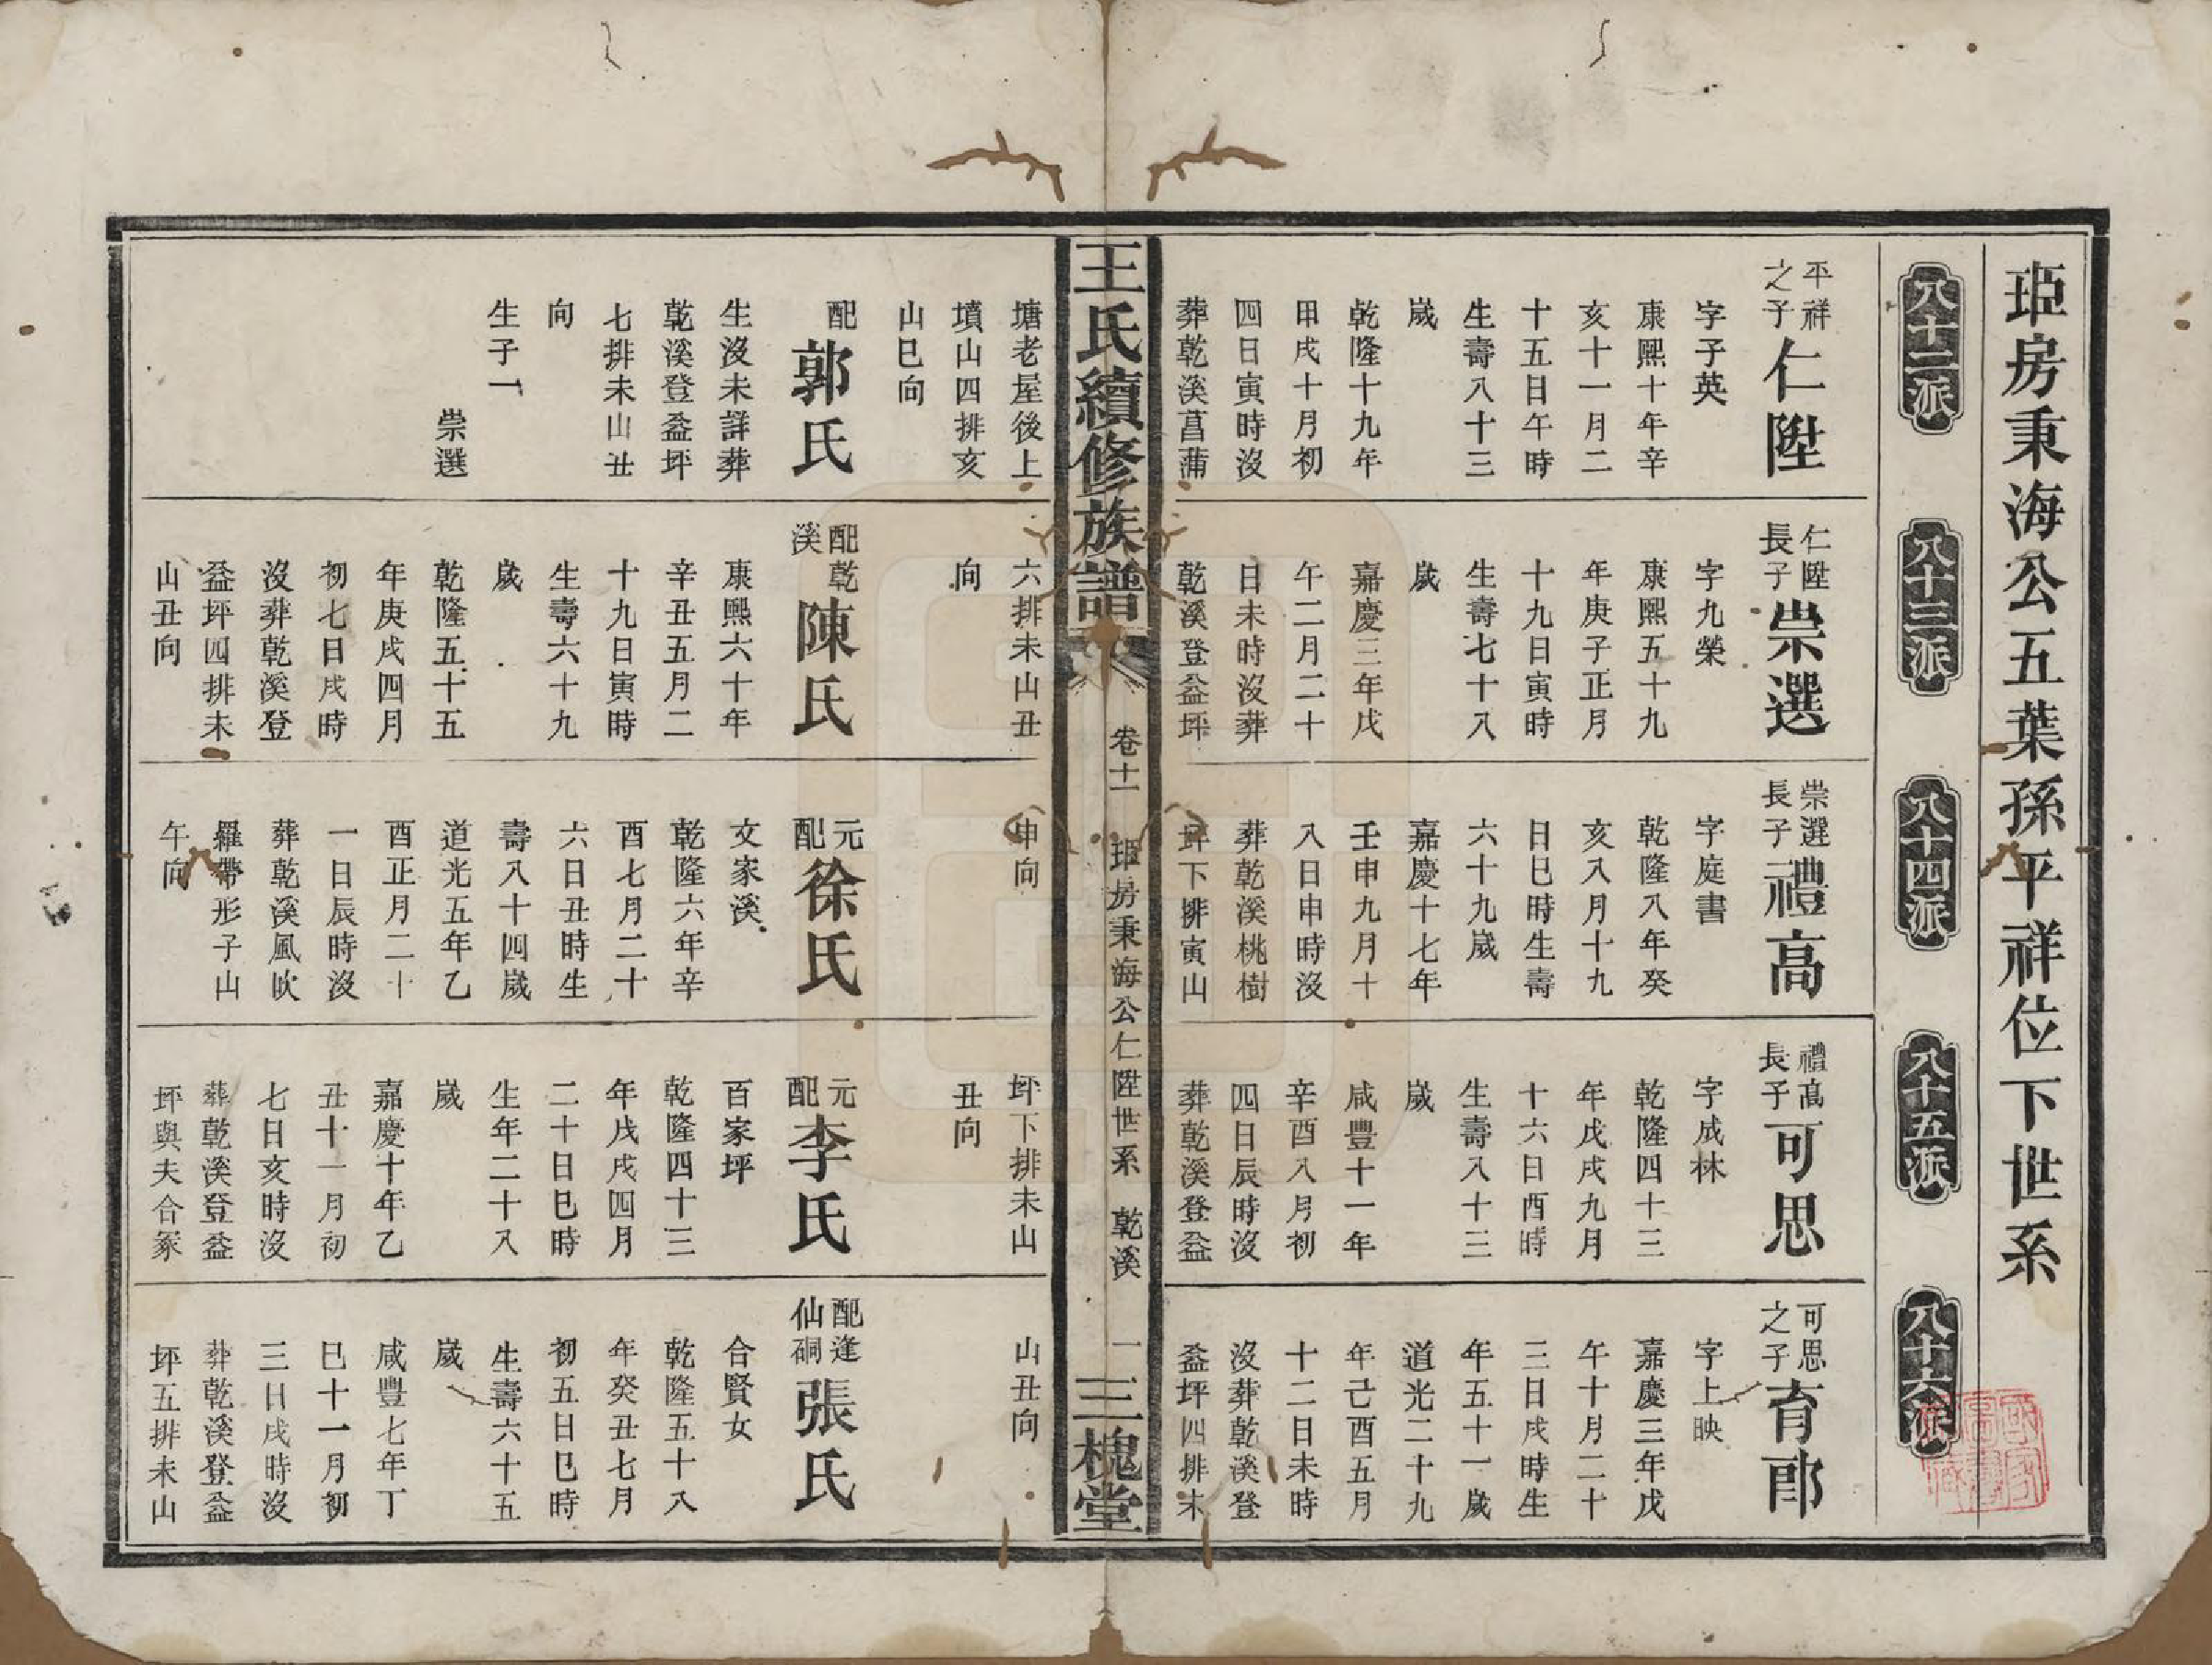 珦房秉海公五葉孫平祥位下世系
八十二派
八十三派
八十四派
八十五派
八十六派
平祥之子
仁陞
字子英
康熙十年辛
亥十一月二
十五日午時
生壽八十三
歲
乾隆十九年
甲戌十月初
四日寅時沒
葬乾溪菖蒲
塘老屋後上
墳山四排亥
山巳向
配
郭氏
生沒未詳葬
乾溪登益坪
七排未山丑
向
生子一
崇選
仁陞長子
崇選
字九榮
康熙五十九
年庚子正月
十九日寅時
生壽七十八
歲
嘉慶三年戊
午二月二十
日未時沒葬
乾溪登益坪
六排未山丑
向
配乾溪
陳氏
康熙六十年
辛丑五月二
十九日寅時
生壽六十九
歲
乾隆五十五
年庚戌四月
初七日戌時
沒葬乾溪登
益坪四排未
山丑向
崇選長子
禮高
字庭書
乾隆八年癸
亥八月十九
日巳時生壽
六十九歲
嘉慶十七年
壬申九月十
八日申時沒
葬乾溪桃樹
坪下排寅山
申向
元配
徐氏
文家溪
乾隆六年辛
酉七月二十
六日丑時生
壽八十四歲
道光五年乙
酉正月二十
一日辰時沒
葬乾溪風吹
羅帶形子山
午向
禮高長子
可思
字成林
乾隆四十三
年戊戌九月
十六日酉時
生壽八十三
歲
咸豐十一年
辛酉八月初
四日辰時沒
葬乾溪登益
坪下排未山
丑向
元配
李氏
百家坪
乾隆四十三
年戊戌四月
二十日巳時
生年二十八
歲
嘉慶十年乙
丑十一月初
七日亥時沒
葬乾溪登益
坪與夫合冢
可思之子
育郎
字上映
嘉慶三年戊
午十月二十
三日戌時生
年五十一歲
道光二十九
年己酉五月
十二日未時
沒葬乾溪登
益坪四排未
山丑向
配逢仙硐
張氏
合賢女
乾隆五十八
年癸丑七月
初五日巳時
生壽六十五
歲
咸豐七年丁
巳十一月初
三日戌時沒
葬乾溪登益
坪五排未山
王氏續修族譜
卷十一
珦房秉海公仁陞世系
乾溪
一
三槐堂